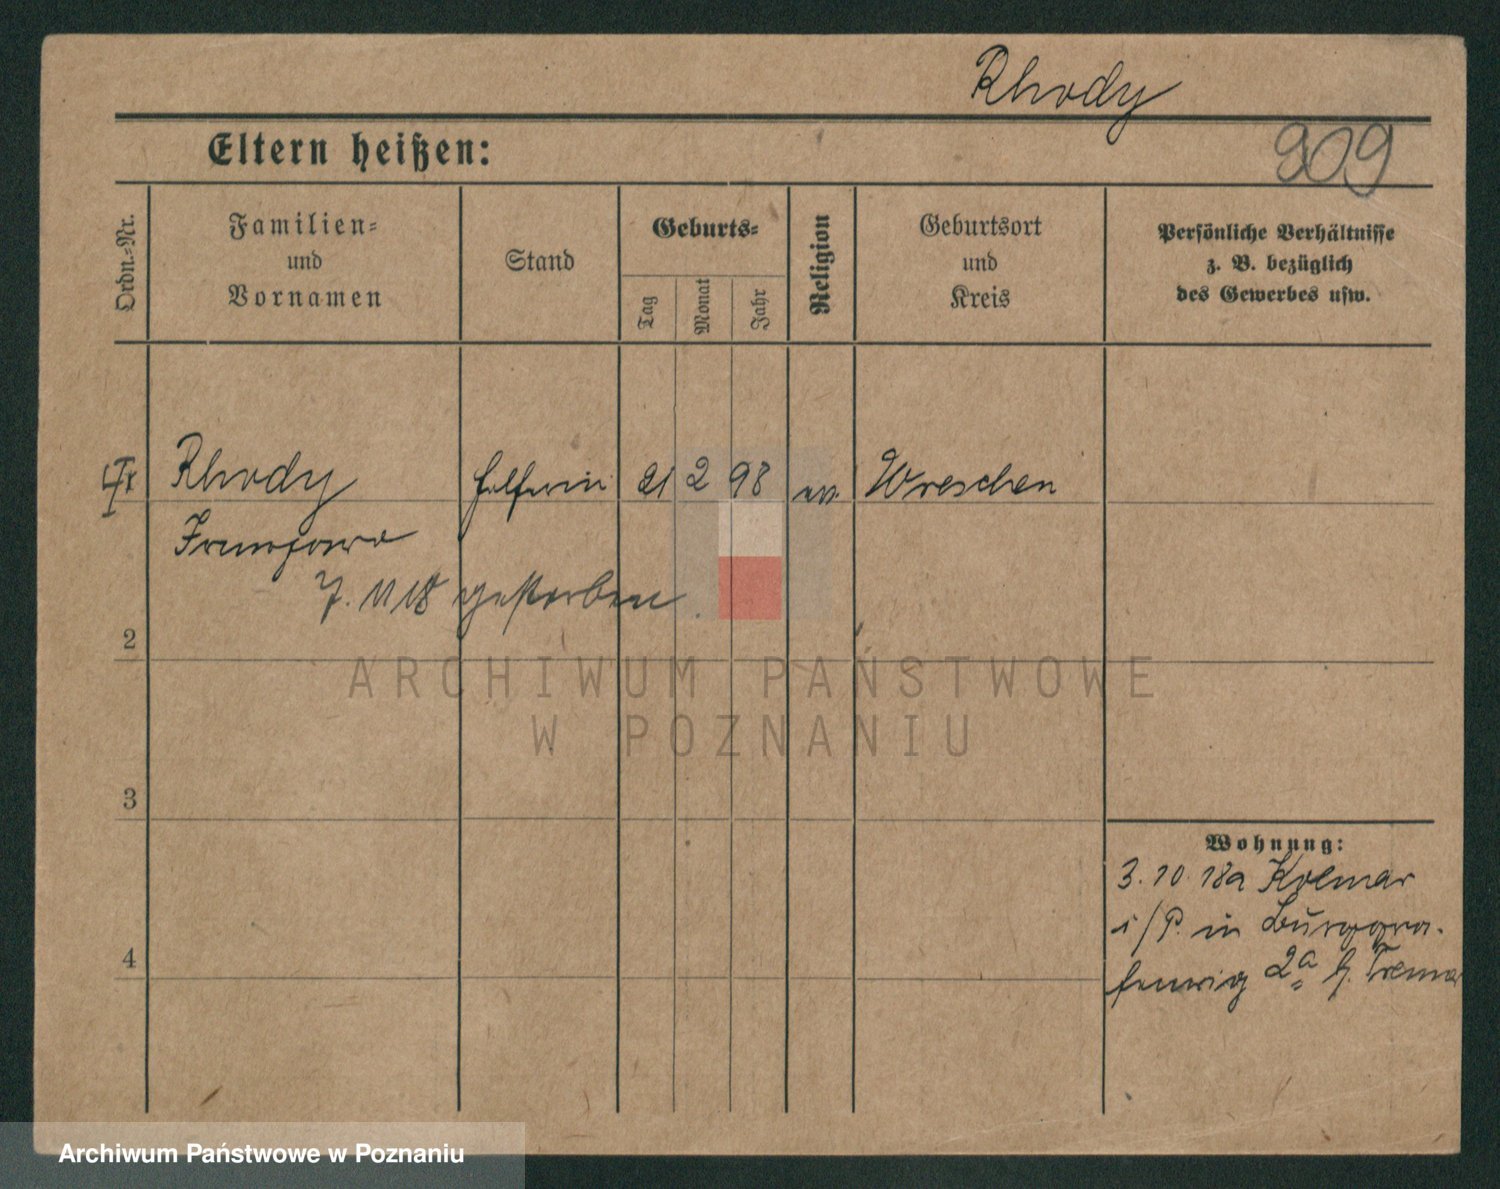 Rhody
909
Eltern heißen:
Ordn.-Nr.
Familien-
und
Vornamen
Stand
Geburts-
Tag
Monat
Jahr
Religion
Geburtsort
und
Kreis
Persönliche Verhältnisse
z. B. bezüglich
des Gewerbes usw.
Rhody
21 2 98
Wreschen
7. 11 18 gestorben
2
ARCHIWUM PAŃSTWOWE
W POZNANIU
3
Wohnung:
3. 10. 18 a Kolmar
i/P. in Burggra-
2a
4
Archiwum Państwowe w Poznaniu